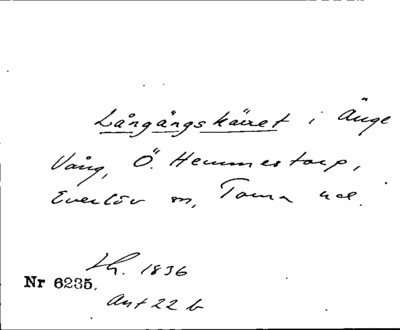 Långängskärret i Änge
Vång, Ö. Hemmestorp,
Everlöv sn, Torna hd.
Lh. 1836
Nr 6235.
Ant 22 b